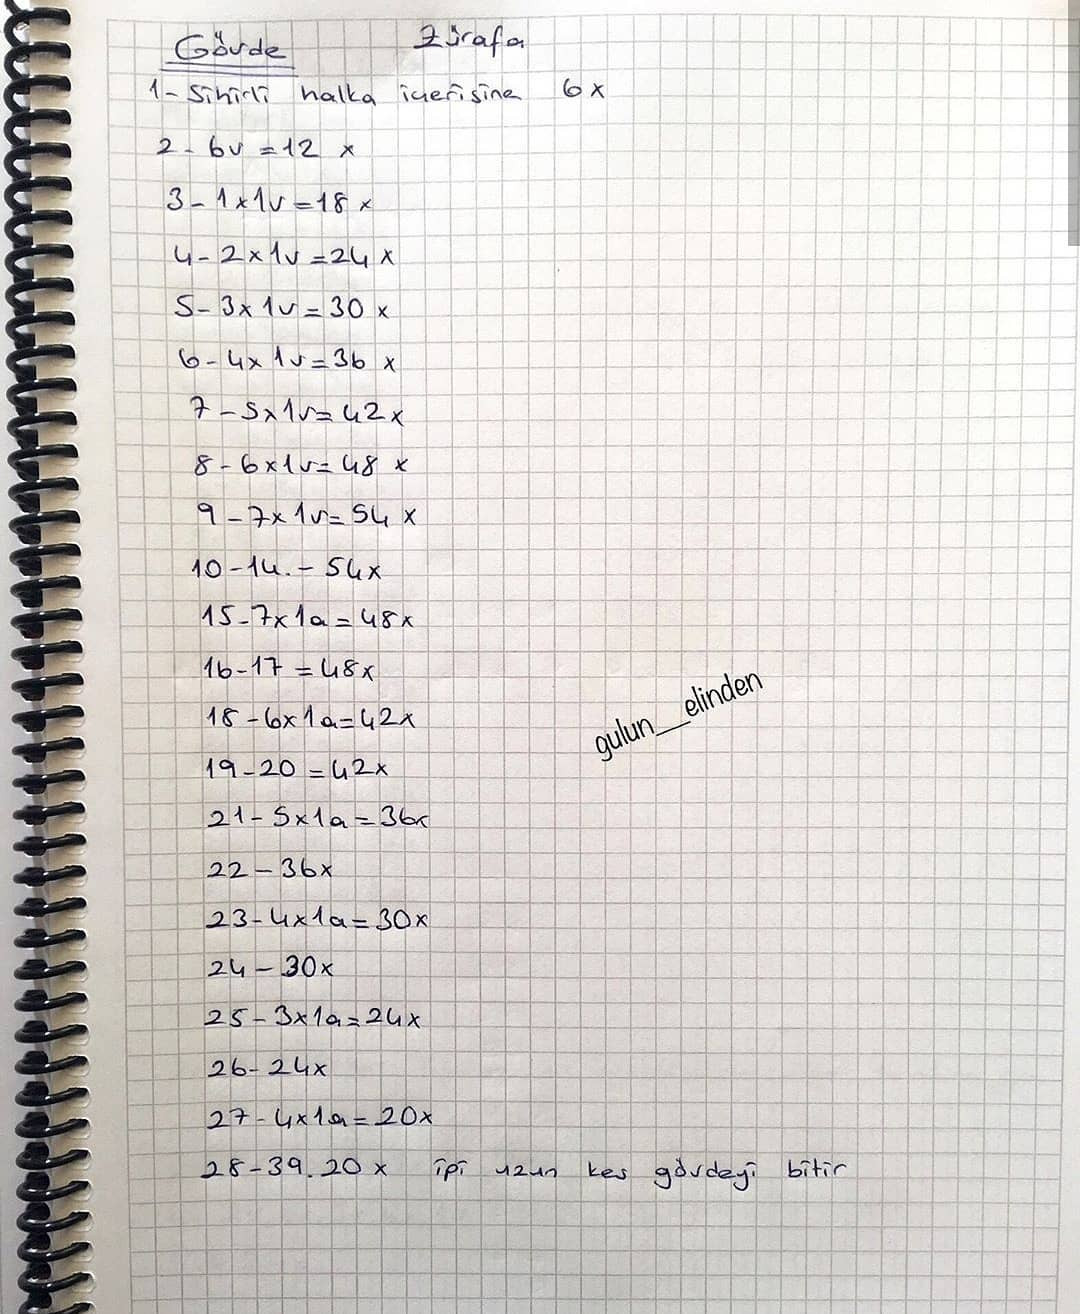 Gövde Zürafa
1- Sihirli halka içerisine 6x
2- 6v = 12 x
3- 1x1v = 18 x
4- 2x1v = 24 x
5- 3x1v = 30 x
6- 4x1v = 36 x
7- 5x1v = 42x
8- 6x1v = 48 x
9- 7x1v = 54 x
10-14. - 54x
15-7x1a = 48x
16-17 = 48x
18-6x1a = 42x
19-20 = 42x
21-5x1a = 36x
22-36x
23-4x1a = 30x
24-30x
25-3x1a = 24x
26-24x
27-4x1a = 20x
28-39. 20 x ipi uzun kes gövdeyi bitir
gulun__elinden